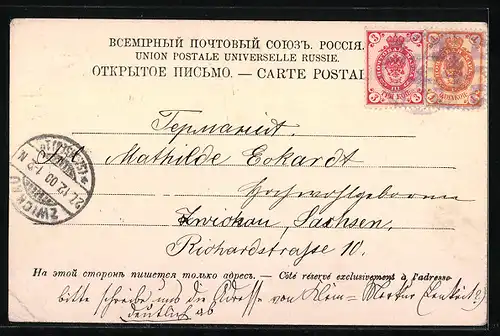 ВСЕМІРНЫЙ ПОЧТОВЫЙ СОЮЗЪ. РОССІЯ.
UNION POSTALE UNIVERSELLE RUSSIE.
ОТКРЫТОЕ ПИСЬМО. — CARTE POSTAL
3 3
3 3
ТРИ КОП.
1 1
Германія.
Mathilde Eckardt
Hochwohlgeboren
Zwickau, Sachsen,
Richardstrasse 10.
ZWICKAU
22.12.00.1-2N.
На этой сторонѣ пишется только адресъ. — Côté réservé exclusivement à l'adresse
bitte schreibe uns die Adresse von Klein-
deutlich ab